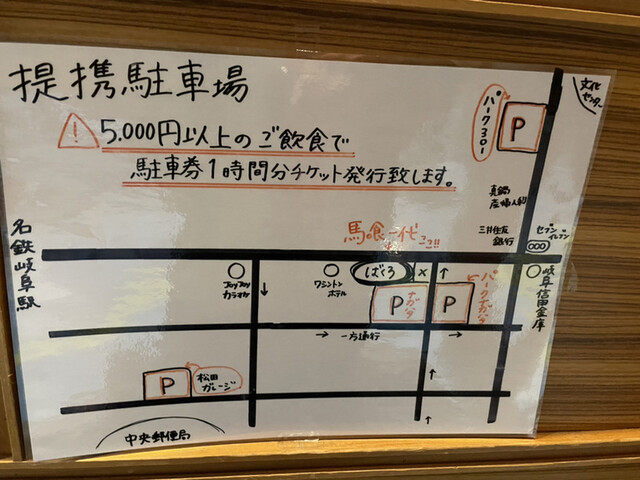 提携駐車場
5.000円以上のご飲食で
駐車券1時間分チケット発行致します。
文化
センター
パーク301
P
真鍋
産婦人科
三井住友
銀行
セブン
イレブン
名鉄岐阜駅
馬喰一代
ココ!!
ばくろ
×
JOYJOY
カラオケ
ワシントン
ホテル
岐阜信用金庫
P
ナガハタ
P
パークナガハタ
一方通行
P
松田
ガレージ
中央郵便局